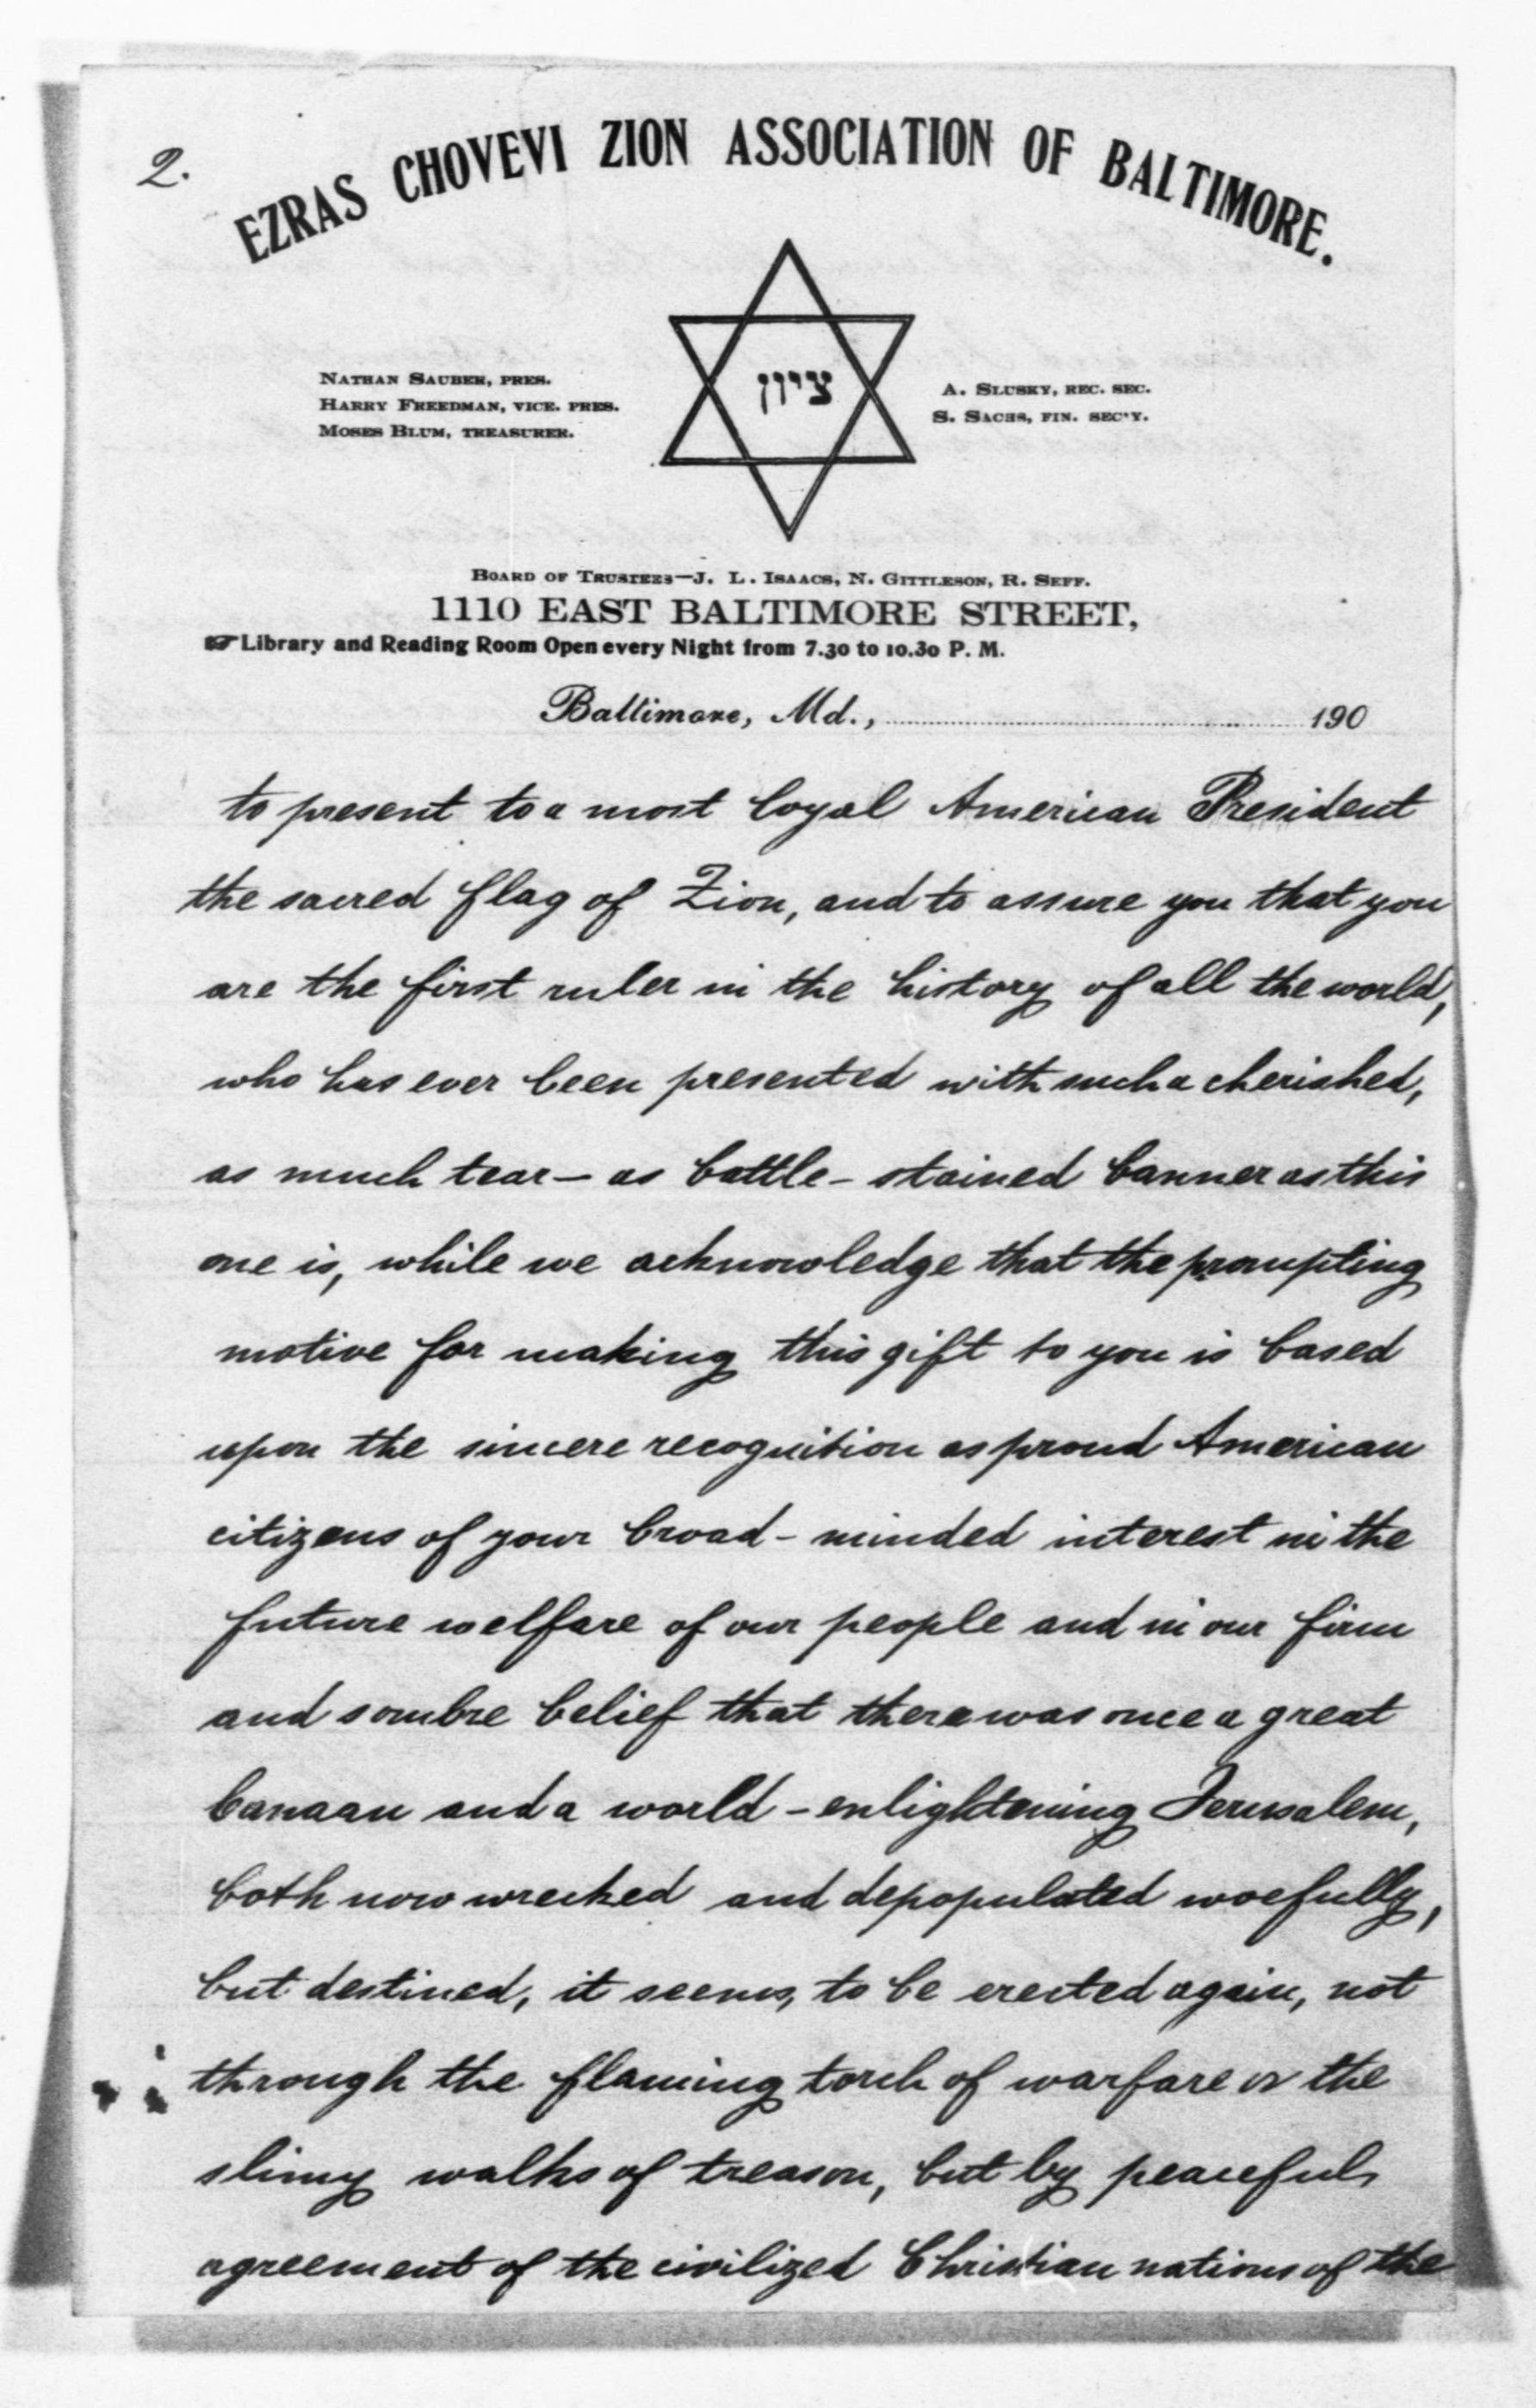 2.
EZRAS CHOVEVI ZION ASSOCIATION OF BALTIMORE.
ציון
NATHAN SAUBER, PRES.
HARRY FREEDMAN, VICE. PRES.
MOSES BLUM, TREASURER.
A. SLUSKY, REC. SEC.
S. SACHS, FIN. SEC'Y.
BOARD OF TRUSTEES—J. L. ISAACS, N. GITTLESON, R. SEFF.
1110 EAST BALTIMORE STREET,
☞ Library and Reading Room Open every Night from 7.30 to 10.30 P. M.
Baltimore, Md., 190
to present to a most loyal American President
the sacred flag of Zion, and to assure you that you
are the first ruler in the history of all the world,
who has ever been presented with such a cherished,
as much tear – as battle – stained banner as this
one is, while we acknowledge that the prompting
motive for making this gift to you is based
upon the sincere recognition as proud American
citizens of your broad – minded interest in the
future welfare of our people and in our firm
and sombre belief that there was once a great
Canaan and a world – enlightening Jerusalem,
both now wrecked and depopulated woefully,
but destined, it seems, to be erected again, not
through the flaming torch of warfare or the
slimy walks of treason, but by peaceful
agreement of the civilized Christian nations of the